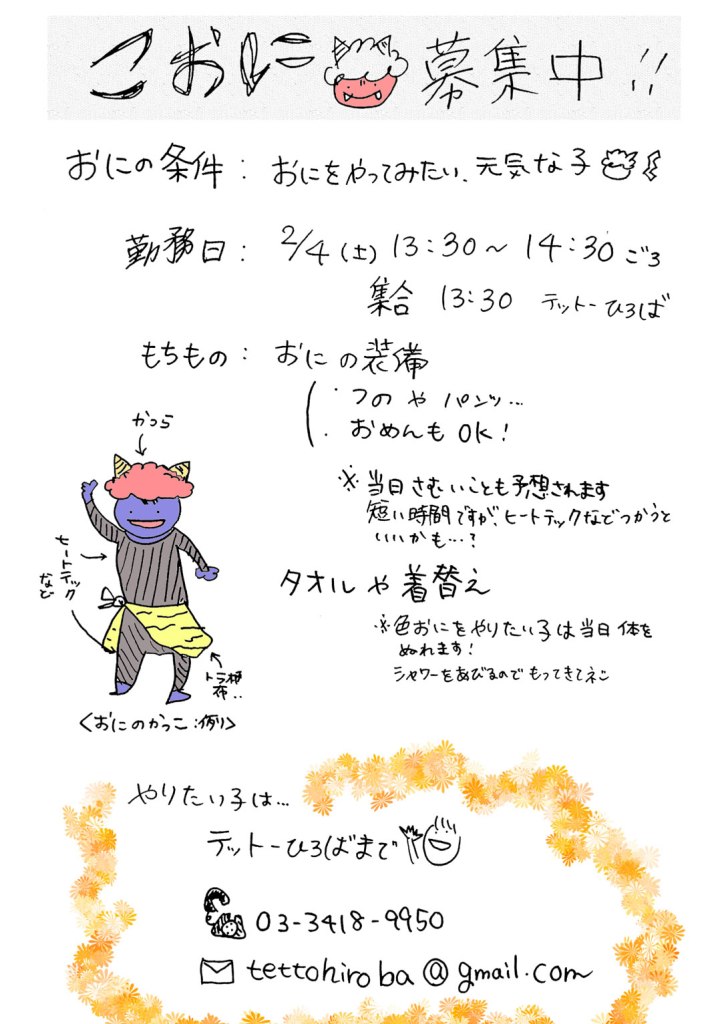 こおに 募集中!!
おにの条件: おにをやってみたい、元気な子
勤務日: 2/4(土) 13:30〜14:30ごろ
集合 13:30 テットーひろば
もちもの: おにの装備
・つのやパンツ…
・おめんもOK!
※当日さむいことも予想されます
短い時間ですが、ヒートテックなどつかうと
いいかも…?
タオルや着替え
※色おにをやりたい子は当日体を
ぬれます!
シャワーをあびるのでもってきてネ
かつら
ヒートテック
など
トラ柄
布..
<おにのかっこ:例り>
やりたい子は…
テットーひろばまで
03-3418-9950
tettohiroba@gmail.com